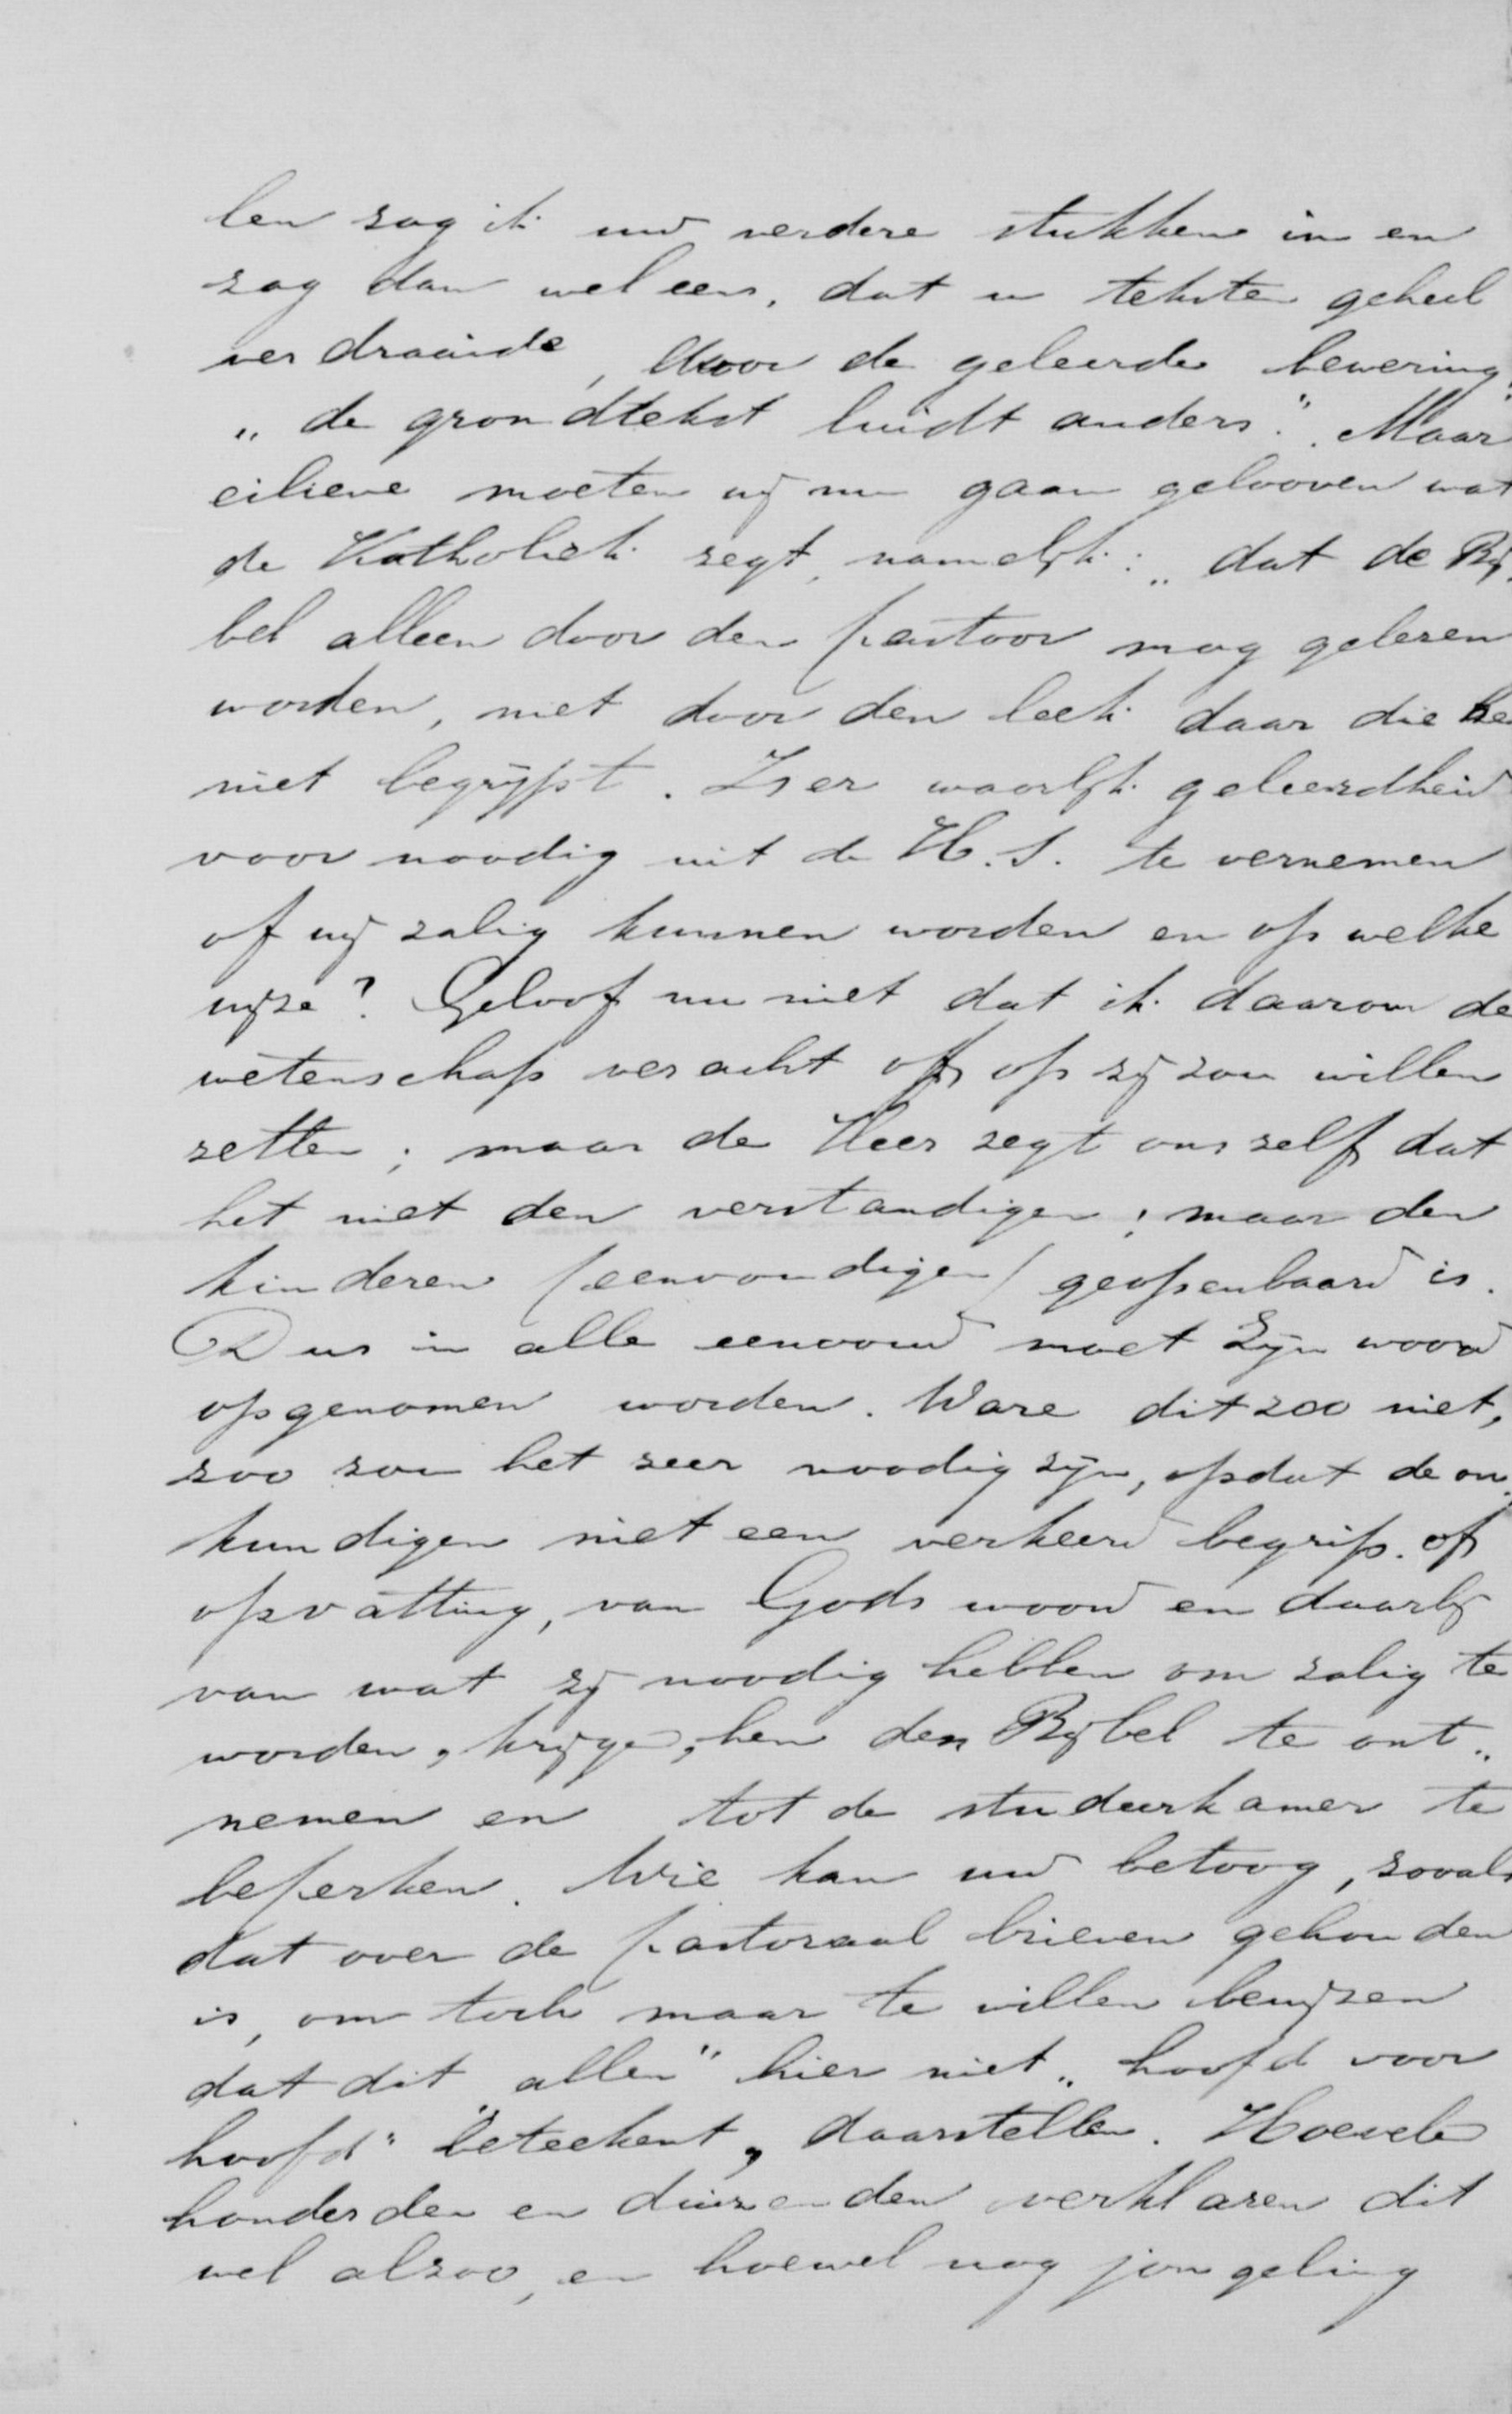 len zag ik uw verdere stukken in en
zag dan wel eens, dat u teksten geheel
verdraaide, door de geleerde bewering
„de grondtekst luidt anders." Maar
eilieve moeten wij nu gaan gelooven wat
de Katholiek zegt, namelijk: „dat de Bij-
bel alleen door den pastoor mag gelezen
worden, niet door den leek daar die he
niet begrijpt. Is er waarlijk geleerdheid
voor noodig uit de H.S. te vernemen
of wij zalig kunnen worden en op welke
wijze? Geloof nu niet dat ik daarom de
wetenschap veracht of op zij zou willen
zetten; maar de Heer zegt ons zelf dat
het niet den verstandigen; maar den
kinderen (eenvoudigen) geopenbaard is.
Dus in alle eenvoud moet Zijn woord
opgenomen worden. Ware dit zoo niet,
zoo zou het zeer noodig zijn, opdat de on-
kundigen niet een verkeerd begrip of
opvatting, van Gods woord en daarbij
van wat zij noodig hebben om zalig te
worden, krijgen, hen den Bijbel te ont-
nemen en tot de studeerkamer te
beperken. Wie kan uw betoog, zooals
dat over de pastoraal brieven gehouden
is, om toch maar te willen bewijzen
dat dit „allen" hier niet „hoofd voor
hoofd" beteekent, daarstellen. Hoevele
honderden en duizenden verklaren dit
wel alzoo, en hoewel nog jongeling